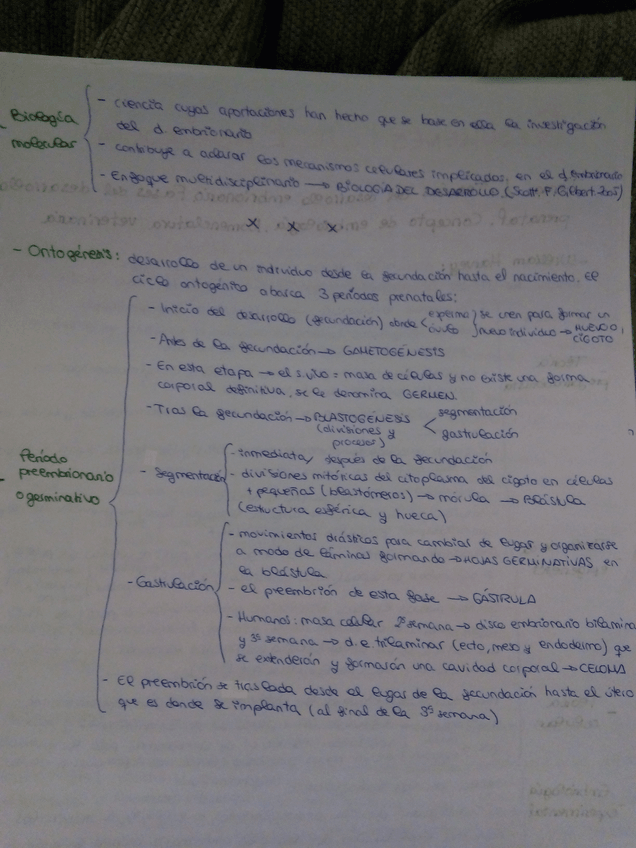 Biología
molecular
- ciencia cuyas aportaciones han hecho que se base en ella la investigación
del d. embrionario
- contribuye a aclarar los mecanismos celulares implicados en el d. embrionario
- Enfoque multidisciplinario → BIOLOGÍA DEL DESARROLLO (Scott. F. Gilbert. 2005)
x x x
- Ontogénesis: desarrollo de un individuo desde la fecundación hasta el nacimiento. El
ciclo ontogénico abarca 3 periodos prenatales:
Periodo
preembrionario
o germinativo
- Inicio del desarrollo (fecundación) donde espermo óvulo se unen para formar un nuevo individuo → HUEVO O CIGOTO
- Antes de la fecundación → GAMETOGÉNESIS
- En esta etapa → el s. vivo = masa de células y no existe una forma
corporal definitiva, se le denomina GERMEN.
- Tras la fecundación → BLASTOGÉNESIS
(divisiones y
procesos)
segmentación
gastrulación
- Segmentación
- inmediata/ después de la fecundación
- divisiones mitóticas del citoplasma del cigoto en células
+ pequeñas (blastómeros) → mórula → Blástula
(estructura esférica y hueca)
- Gastrulación
- movimientos drásticos para cambiar de lugar y organizarse
a modo de láminas formando → HOJAS GERMINATIVAS en
la blástula
- el preembrión de esta fase → GÁSTRULA
- Humanos: masa celular 2ª semana → disco embrionario bilaminar
y 3ª semana → d. e. trilaminar (ecto, meso y endodermo) que
se extenderán y formarán una cavidad corporal → CELOMA
- El preembrión se traslada desde el lugar de la fecundación hasta el útero
que es donde se implanta (al final de la 3ª semana)